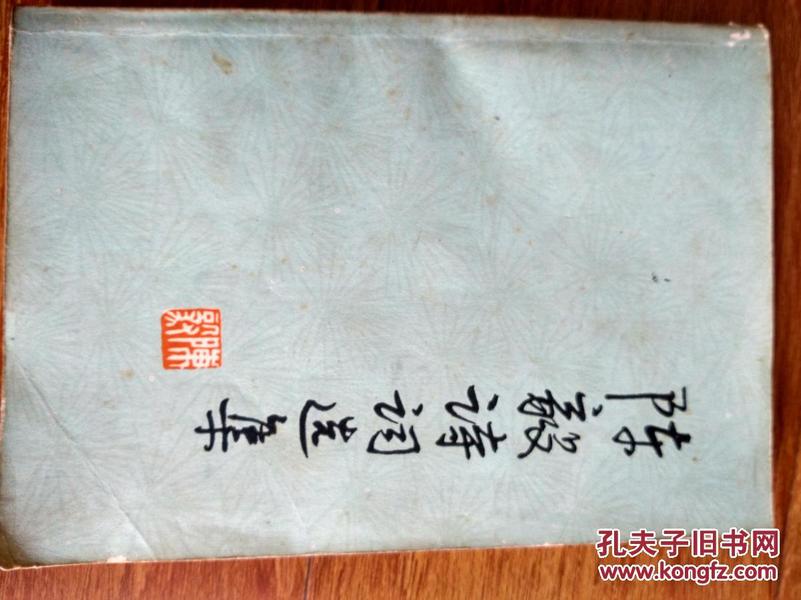 陈毅诗词选集
陈毅
孔夫子旧书网
www.kongfz.com